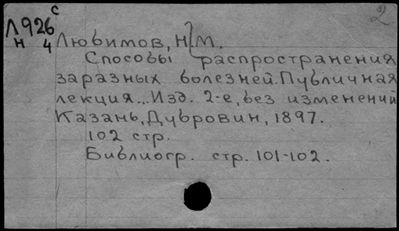 с
Л926
н 4
2
Любимов, Н.М.
Способы распространения
заразных болезней. Публичная
лекция... Изд. 2-е, без изменений
Казань, Дубровин, 1897.
102 стр.
Библиогр. стр. 101-102.